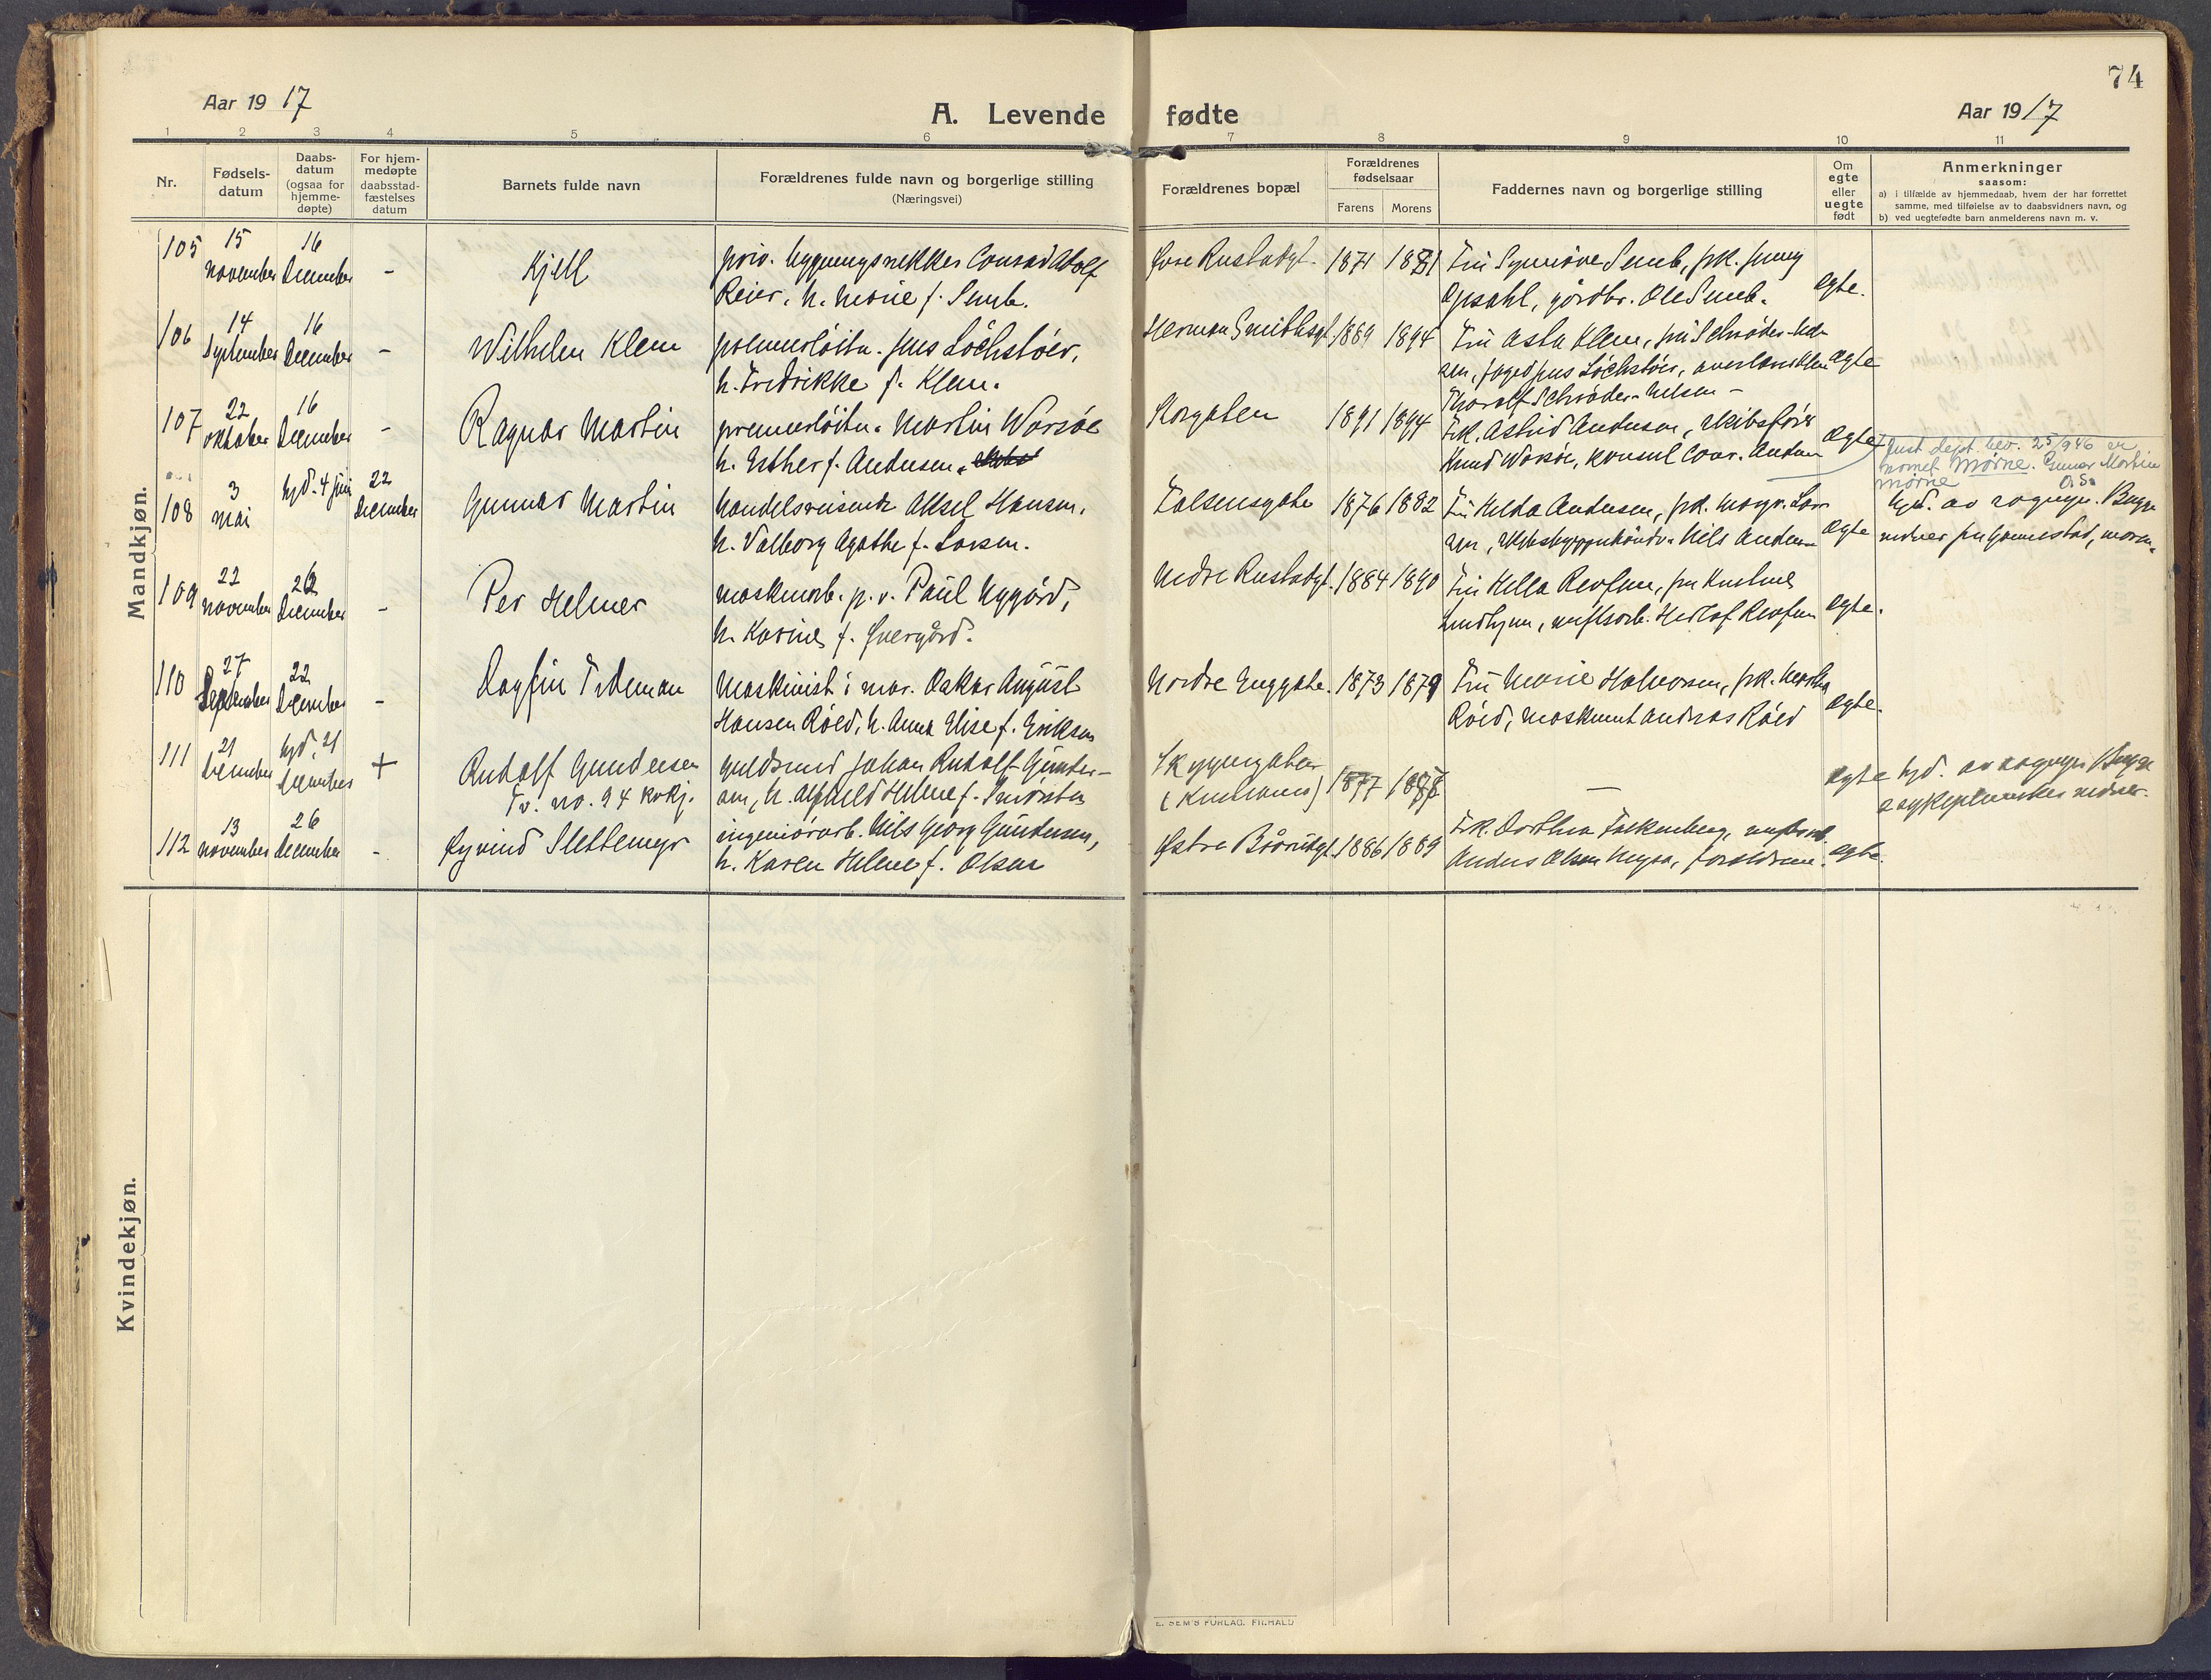 74
Aar 1917
A. Levende fødte
Aar 1917
1 2 3 4 5 6 7 8 9 10 11
Nr.
Fødsels-
datum
Daabs-
datum
(ogsaa for
hjemme-
døpte)
For hjem-
medøpte
daabsstad-
fæstelses
datum
Barnets fulde navn
Forældrenes fulde navn og borgerlige stilling
(Næringsvei)
Forældrenes bopæl
Forældrenes
fødselsaar
Farens Morens
Faddernes navn og borgerlige stilling
Om
egte
eller
uegte
født
Anmerkninger
saasom:
a) i tilfælde av hjemmedaab, hvem der har forrettet
samme, med tilføielse av to daabsvidners navn, og
b) ved uegtefødte barn anmelderens navn m. v.
Mandkjøn.
105
15
november
16
December
-
Kjell
priv. Conrad Adolf
Reier, h. Marie f. Semb.
Øvre Rustadgt.
1871 1881
Fru Synnøve Semb, frk. Jenny
Opsahl, gårdbr. Ole Semb.
egte.
106
14
September
16
December
-
Wilhelm Klem
premierløitn. Jens Løchstøer,
h. Fredrikke f. Klem.
Herman Smithsgt.
1889 1894
Fru Asta Klem, fru Schrøder-Niel-
sen, foged Jens Løchstøer,
Thoralf Schrøder-Nielsen -
egte
107
22
oktober
16
December
-
Ragnar Martin
premierløitn. Martin Warsøe
h. Esther f. Andersen.
Storgaten
1891 1894
Frk. Astrid Andersen, skibsfører
Knud Warsøe, konsul Conr. Andersen
egte
Just. dept. bev. 25/9 46 er
navnet Mørne. Gunnar Martin
Mørne O.S.
108
3
mai
hjd. 4 juni
22
December
Gunnar Martin
handelsreisende Aksel Hansen,
h. Valborg Agathe f. Larsen.
Falsensgate
1876 1882
Fru Hilda Andersen, frk. Margr. Lar-
sen, Nils Andersen
egte
hjd. av sogнepr. Bugge
109
22
november
26
December
-
Per Helmer
maskinarb. p. v. Paul Nygård,
h. Karine f. Øvergård.
Nedre Rustadgt.
1884 1890
Fru Hilla
egte.
110
27
September
22
December
-
Dagfin Tideman
Maskinist i mar. Oskar August
Hansen Røed, h. Anna Elise f. Eriksen
Nordre Enggate.
1873 1879
Fru Marie Halvorsen, frk. Martha
Røed, maskinist Andreas Røed
egte.
111
21
December
hjd. 21
December
+
Rudolf Gundersen
Tv. no. 94 kvkj.
guldsmed Johan Rudolf Gunder-
sen, h. Alfhild Helene f.
1877 1878
-
egte
hjd. av sognepr. Bugge
112
13
november
26
December
-
Øyvind Slettemyr
ingeniørarb. Nils Georg Gundersen,
h. Karen Helene f. Olsen
1886 1889
Frk. Dorthea Falkenberg,
Anders Olsen forældrene.
egte.
Kvindekjøn.
E. SEM'S FORLAG. FR.HALD